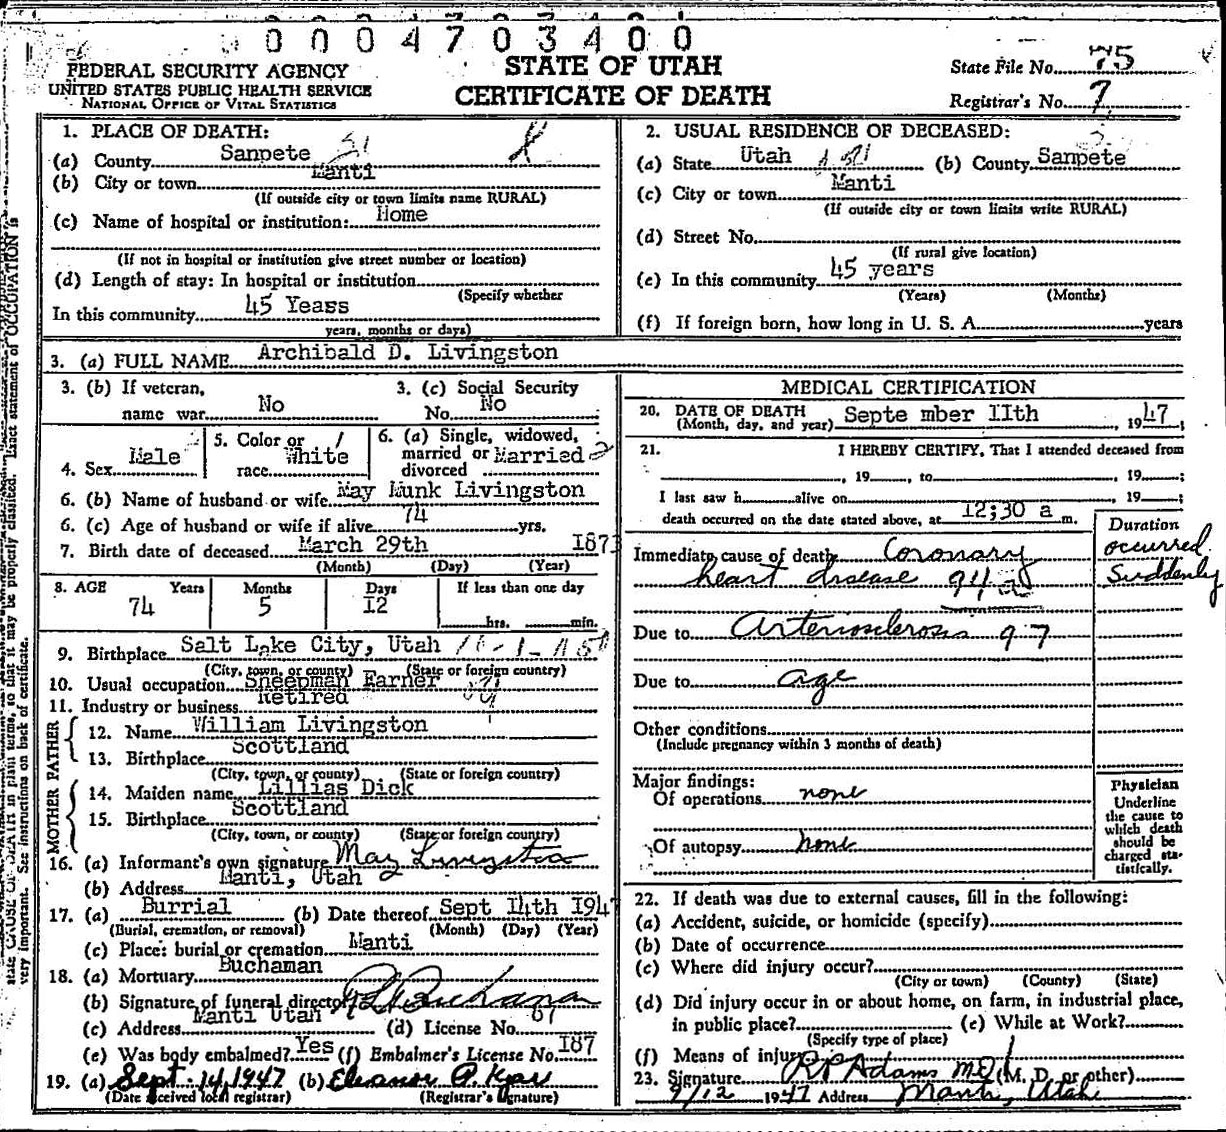 0 0 0 4 7 0 3 4 0 0
FEDERAL SECURITY AGENCY
UNITED STATES PUBLIC HEALTH SERVICE
NATIONAL OFFICE OF VITAL STATISTICS
STATE OF UTAH
CERTIFICATE OF DEATH
State File No. 75
Registrar's No. 7
1. PLACE OF DEATH:
(a) County Sanpete
(b) City or town Manti
(If outside city or town limits name RURAL)
(c) Name of hospital or institution: Home
(If not in hospital or institution give street number or location)
(d) Length of stay: In hospital or institution
(Specify whether
In this community 45 Yeass
years, months or days)
2. USUAL RESIDENCE OF DECEASED:
(a) State Utah (b) County Sanpete
(c) City or town Manti
(If outside city or town limits write RURAL)
(d) Street No.
(If rural give location)
(e) In this community 45 years
(Years) (Months)
(f) If foreign born, how long in U. S. A. years
3. (a) FULL NAME Archibald D. Livingston
3. (b) If veteran, name war No
3. (c) Social Security No. No
4. Sex Male
5. Color or race White
6. (a) Single, widowed, married or divorced Married
6. (b) Name of husband or wife May Munk Livingston
6. (c) Age of husband or wife if alive 74 yrs.
7. Birth date of deceased March 29th 1873
(Month) (Day) (Year)
8. AGE Years Months Days If less than one day
74 5 12 hrs. min.
9. Birthplace Salt Lake City, Utah
(City, town, or county) (State or foreign country)
10. Usual occupation Sheepman Farner
11. Industry or business Retired
FATHER
12. Name William Livingston
13. Birthplace Scottland
(City, town, or county) (State or foreign country)
MOTHER
14. Maiden name Lillias Dick
15. Birthplace Scottland
(City, town, or county) (State or foreign country)
16. (a) Informant's own signature May Livingston
(b) Address Manti, Utah
17. (a) Burrial (b) Date thereof Sept 14th 1947
(Burial, cremation, or removal) (Month) (Day) (Year)
(c) Place: burial or cremation Manti
18. (a) Mortuary Buchaman
(b) Signature of funeral director
(c) Address Manti Utah (d) License No.
(e) Was body embalmed? Yes (f) Embalmer's License No. 187
19. (a) Sept. 14, 1947 (b) Eleanor P.
(Date received local registrar) (Registrar's signature)
MEDICAL CERTIFICATION
20. DATE OF DEATH
(Month, day, and year) Septe mber 11th, 1947;
21. I HEREBY CERTIFY, That I attended deceased from
, 19 , to , 19 ;
I last saw h alive on , 19 ;
death occurred on the date stated above, at 12;30 a m.
Duration
Immediate cause of death Coronary occurred
heart disease Suddenly
Due to Arteriosclerosis 97
Due to age
Other conditions
(Include pregnancy within 3 months of death)
Major findings:
Of operations none
Of autopsy none
Physician
Underline
the cause to
which death
should be
charged sta-
tistically.
22. If death was due to external causes, fill in the following:
(a) Accident, suicide, or homicide (specify)
(b) Date of occurrence
(c) Where did injury occur?
(City or town) (County) (State)
(d) Did injury occur in or about home, on farm, in industrial place,
in public place? (e) While at Work?
(Specify type of place)
(f) Means of injury
23. Signature R P Adams MD (M. D. or other)
9/12 1947 Address Manti, Utah